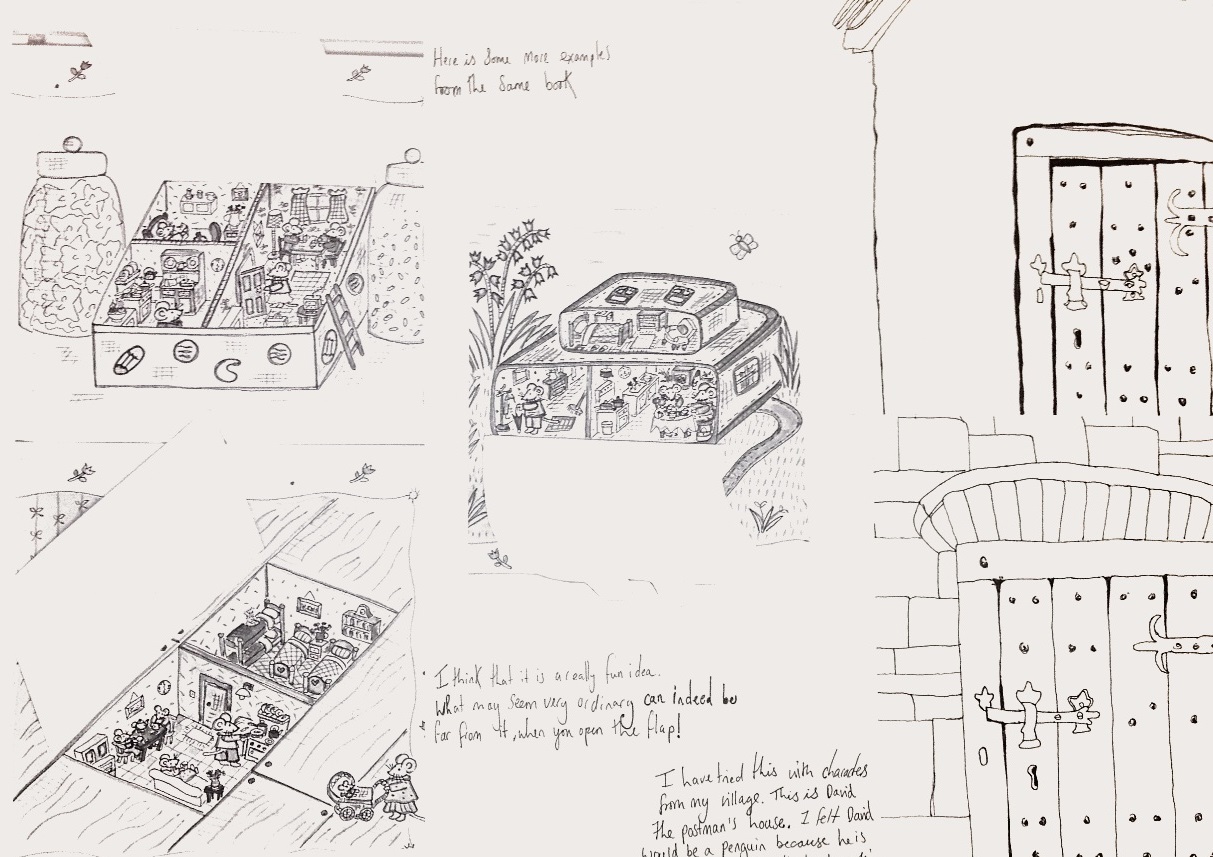 Here is Some More examples
from the Same book
I think that it is a really fun idea.
What may Seem very ordinary can indeed be
far from it, when you open the flap!
I have tried this with charactes
from my village. This is David
the postman's house. I felt David
would be a penguin because he is